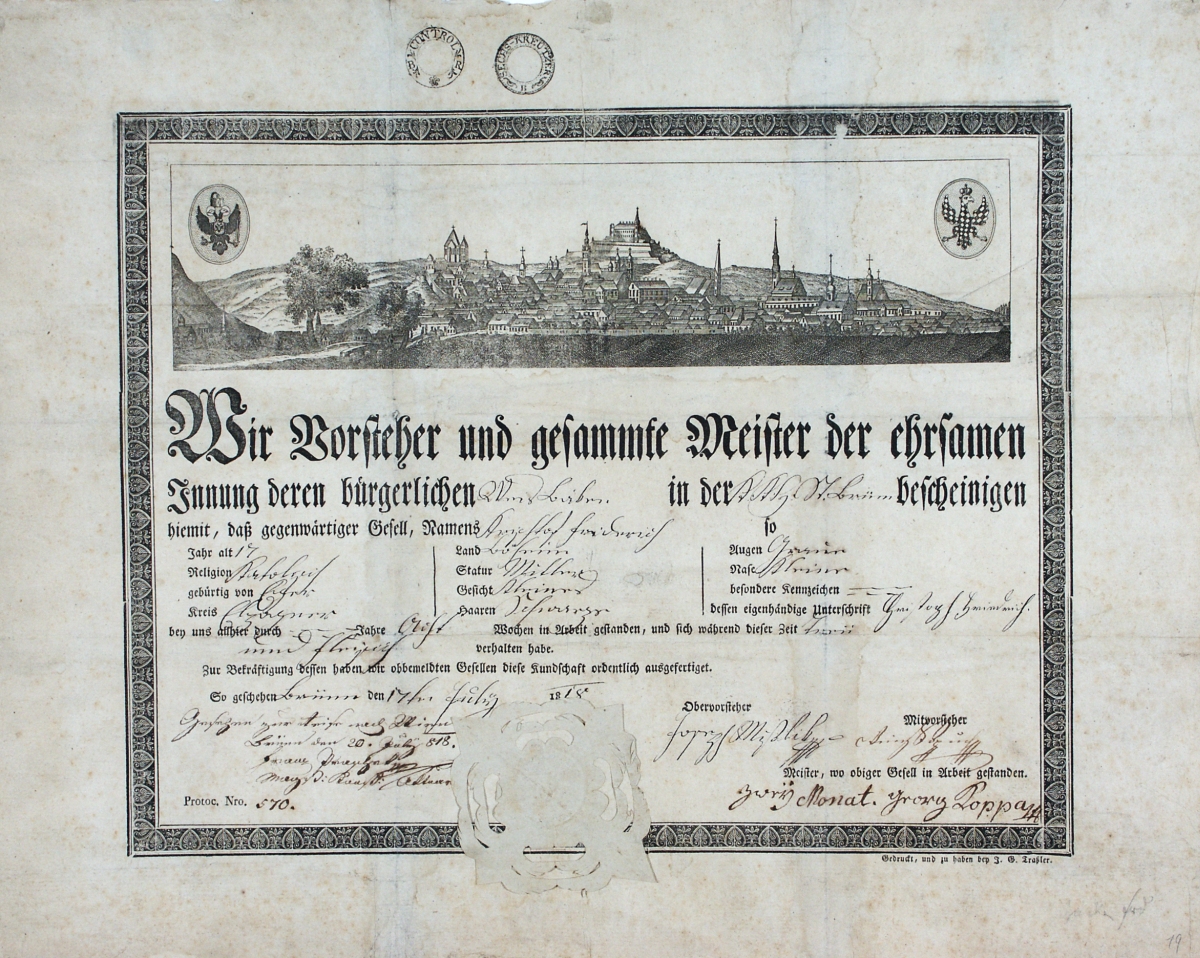 CONTROLM
SECHS-KREUTZER
Wir Vorsteher und gesammte Meister der ehrsamen
Innung deren bürgerlichen in der Brünn bescheinigen
hiemit, daß gegenwärtiger Gesell, Namens Kristof Friderich so
Jahr alt 17 Land Böheim Augen Graue
Religion Statur Mittere Nase Kleine
gebürtig von Eger Gesicht Kleines besondere Kennzeichen
Kreis Haaren Schwarze dessen eigenhändige Unterschrift Christoph Friedrich.
bey uns allhier durch Jahre Acht Wochen in Arbeit gestanden, und sich während dieser Zeit treü
und fleisig verhalten habe.
Zur Bekräftigung dessen haben wir obbemeldten Gesellen diese Kundschaft ordentlich ausgefertiget.
So geschehen Brünn den 17ten July 1818
Obervorsteher
Mitvorsteher
Gesehen zur Reise nach Wien
Brünn den 20. July 818.
Joseph
Meister, wo obiger Gesell in Arbeit gestanden.
zweÿ Monat. Georg Koppa
Protoc. Nro. 570.
Gedruckt, und zu haben bey J. G. Traßler.
19